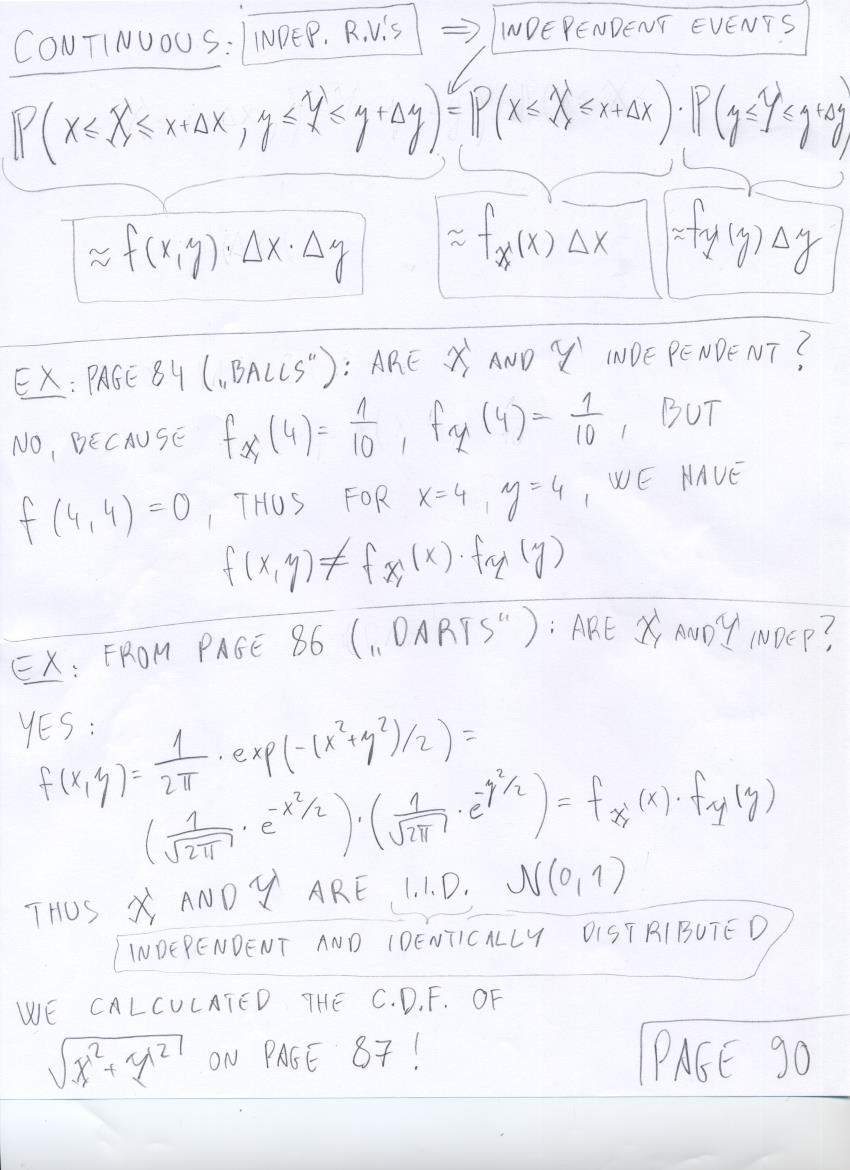 CONTINUOUS: INDEP. R.V.'s ⇒ INDEPENDENT EVENTS
ℙ(x ≤ X ≤ x+Δx, y ≤ Y ≤ y+Δy) = ℙ(x ≤ X ≤ x+Δx) · ℙ(y ≤ Y ≤ y+Δy)
≈ f(x,y) · Δx · Δy ≈ f_X(x) Δx ≈ f_Y(y) Δy
EX: PAGE 84 („BALLS“): ARE X AND Y INDEPENDENT?
NO, BECAUSE f_X(4) = 1/10, f_Y(4) = 1/10, BUT
f(4,4) = 0, THUS FOR x=4, y=4, WE HAVE
f(x,y) ≠ f_X(x) · f_Y(y)
EX: FROM PAGE 86 („DARTS“): ARE X AND Y INDEP?
YES:
f(x,y) = 1/2π · exp(-(x²+y²)/2) =
(1/√2π · e^{-x²/2}) · (1/√2π · e^{-y²/2}) = f_X(x) · f_Y(y)
THUS X AND Y ARE I.I.D. N(0,1)
INDEPENDENT AND IDENTICALLY DISTRIBUTED
WE CALCULATED THE C.D.F. OF
√(X²+Y²) ON PAGE 87!
PAGE 90